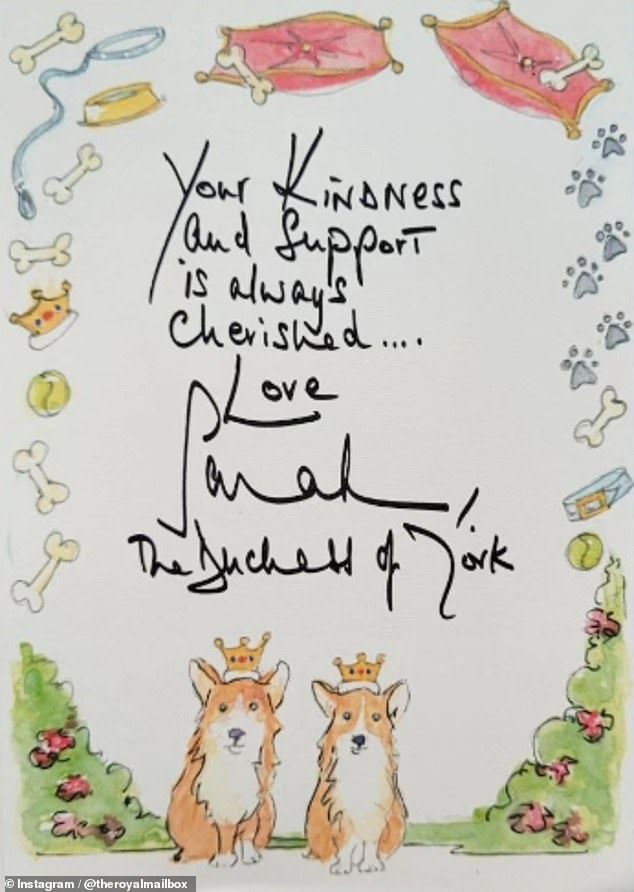 Your KINDNESS
and Support
is always
Cherished....
Love
Sarah,
The Duchess of York
© Instagram / @theroyalmailbox